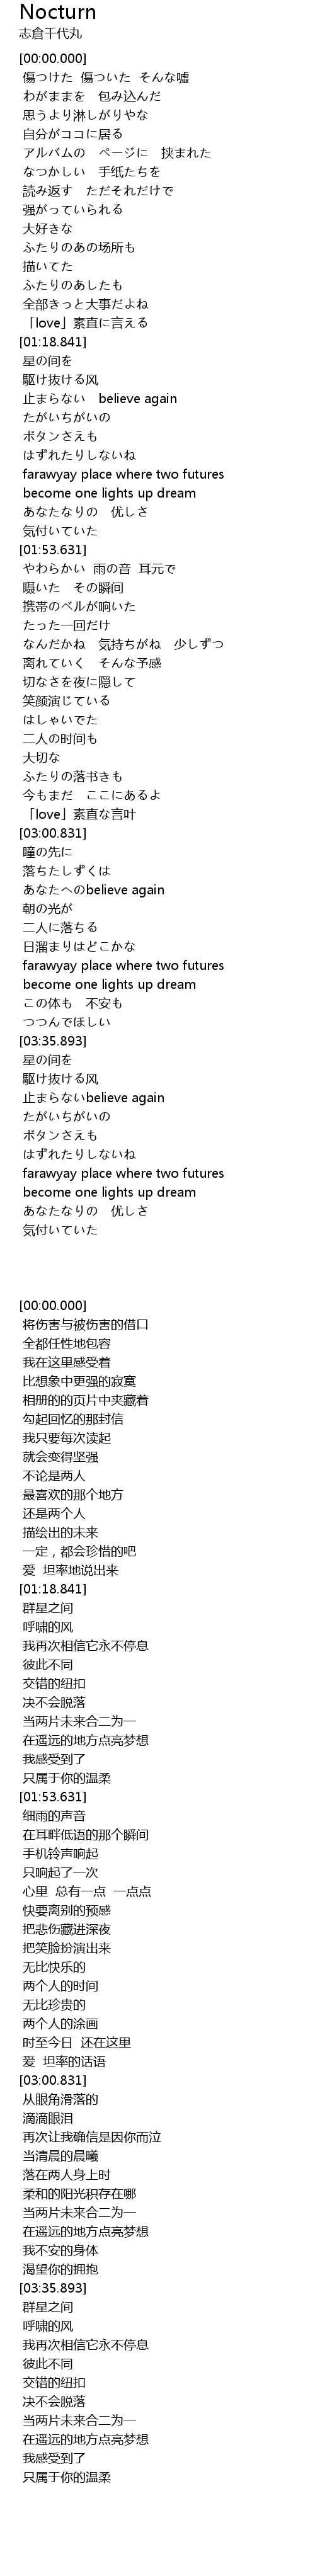 Nocturn
志倉千代丸
[00:00.000]
傷つけた 傷ついた そんな嘘
わがままを　包み込んだ
思うより淋しがりやな
自分がココに居る
アルバムの　ページに　挟まれた
なつかしい　手纸たちを
読み返す　ただそれだけで
强がっていられる
大好きな
ふたりのあの场所も
描いてた
ふたりのあしたも
全部きっと大事だよね
「love」素直に言える
[01:18.841]
星の间を
駆け抜ける风
止まらない　believe again
たがいちがいの
ボタンさえも
はずれたりしないね
farawyay place where two futures
become one lights up dream
あなたなりの　优しさ
気付いていた
[01:53.631]
やわらかい 雨の音 耳元で
嗫いた　その瞬间
携帯のベルが响いた
たった一回だけ
なんだかね　気持ちがね　少しずつ
离れていく　そんな予感
切なさを夜に隠して
笑颜演じている
はしゃいでた
二人の时间も
大切な
ふたりの落书きも
今もまだ　ここにあるよ
「love」素直な言叶
[03:00.831]
瞳の先に
落ちたしずくは
あなたへのbelieve again
朝の光が
二人に落ちる
日溜まりはどこかな
farawyay place where two futures
become one lights up dream
この体も　不安も
つつんでほしい
[03:35.893]
星の间を
駆け抜ける风
止まらないbelieve again
たがいちがいの
ボタンさえも
はずれたりしないね
farawyay place where two futures
become one lights up dream
あなたなりの　优しさ
気付いていた
[00:00.000]
将伤害与被伤害的借口
全都任性地包容
我在这里感受着
比想象中更强的寂寞
相册的的页片中夹藏着
勾起回忆的那封信
我只要每次读起
就会变得坚强
不论是两人
最喜欢的那个地方
还是两个人
描绘出的未来
一定，都会珍惜的吧
爱 坦率地说出来
[01:18.841]
群星之间
呼啸的风
我再次相信它永不停息
彼此不同
交错的纽扣
决不会脱落
当两片未来合二为一
在遥远的地方点亮梦想
我感受到了
只属于你的温柔
[01:53.631]
细雨的声音
在耳畔低语的那个瞬间
手机铃声响起
只响起了一次
心里 总有一点 一点点
快要离别的预感
把悲伤藏进深夜
把笑脸扮演出来
无比快乐的
两个人的时间
无比珍贵的
两个人的涂画
时至今日 还在这里
爱 坦率的话语
[03:00.831]
从眼角滑落的
滴滴眼泪
再次让我确信是因你而泣
当清晨的晨曦
落在两人身上时
柔和的阳光积存在哪
当两片未来合二为一
在遥远的地方点亮梦想
我不安的身体
渴望你的拥抱
[03:35.893]
群星之间
呼啸的风
我再次相信它永不停息
彼此不同
交错的纽扣
决不会脱落
当两片未来合二为一
在遥远的地方点亮梦想
我感受到了
只属于你的温柔